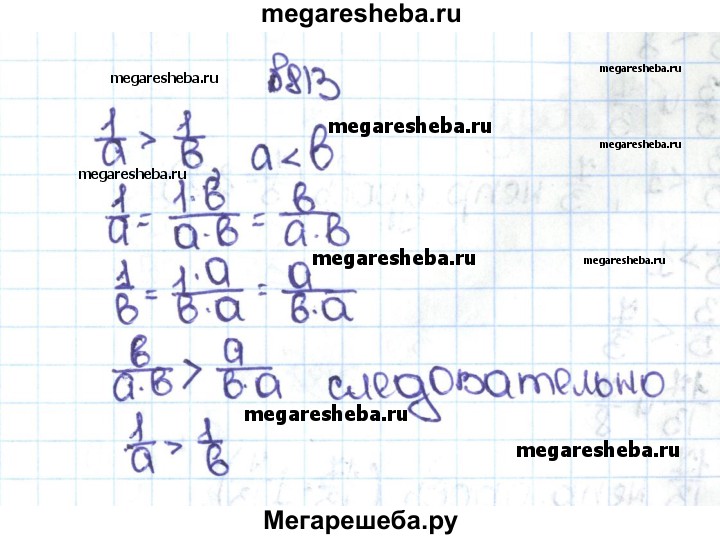 megaresheba.ru
megaresheba.ru
№813
megaresheba.ru
megaresheba.ru
1/a > 1/в    a < в
megaresheba.ru
1/a = 1·в/a·в = в/a·в
megaresheba.ru
megaresheba.ru
1/в = 1·a/в·a = a/в·a
в/a·в > a/в·a следовательно
megaresheba.ru
1/a > 1/в
megaresheba.ru
Мегарешеба.ру